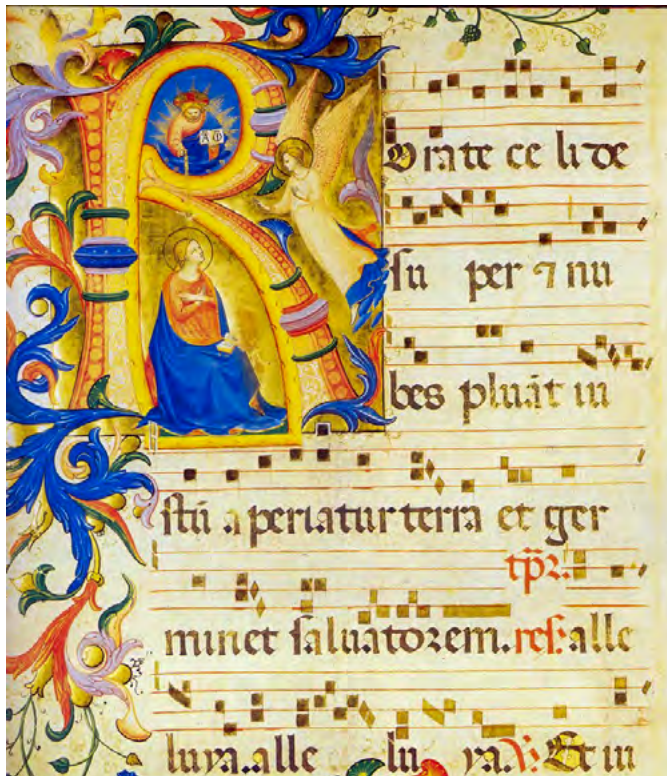 R
Orate ce li de
su per ⁊ nu
bes pluāt iu
stū aperiatur terra et ger
minet saluatorem. alle
luya. alle lu ya. ℣. Et iu